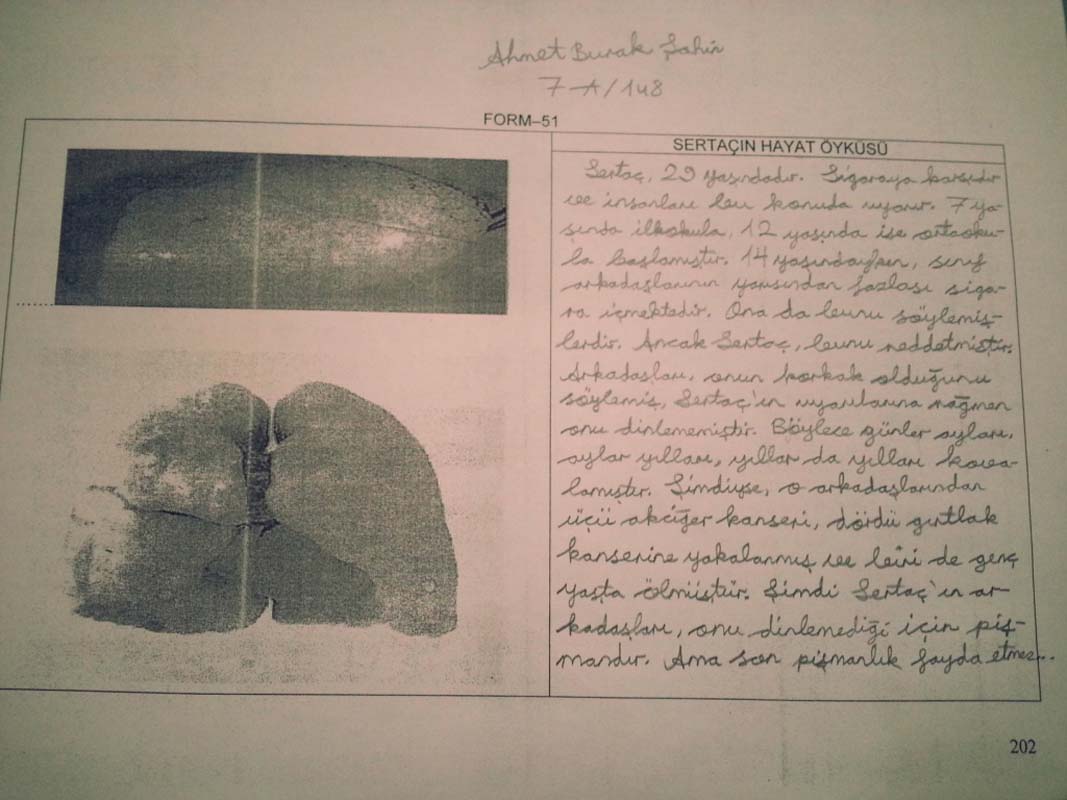 Ahmet Burak Şahin
7-A/148
FORM–51
SERTAÇIN HAYAT ÖYKÜSÜ
Sertaç, 29 yaşındadır. Sigaraya karşıdır
ve insanları bu konuda uyarır. 7 ya-
şında ilkokula, 12 yaşında ise ortaoku-
la başlamıştır. 14 yaşındayken, sınıf
arkadaşlarının yarısından fazlası siga-
ra içmektedir. Ona da bunu söylemiş-
lerdir. Ancak Sertaç, bunu reddetmiştir.
Arkadaşları, onun korkak olduğunu
söylemiş, Sertaç'ın uyarılarına rağmen
onu dinlememiştir. Böylece günler ayları,
aylar yılları, yıllar da yılları kova-
lamıştır. Şimdiyse, o arkadaşlarından
üçü akciğer kanseri, dördü gırtlak
kanserine yakalanmış ve biri de genç
yaşta ölmüştür. Şimdi Sertaç'ın ar-
kadaşları, onu dinlemediği için piş-
mandır. Ama son pişmanlık fayda etmez...
202